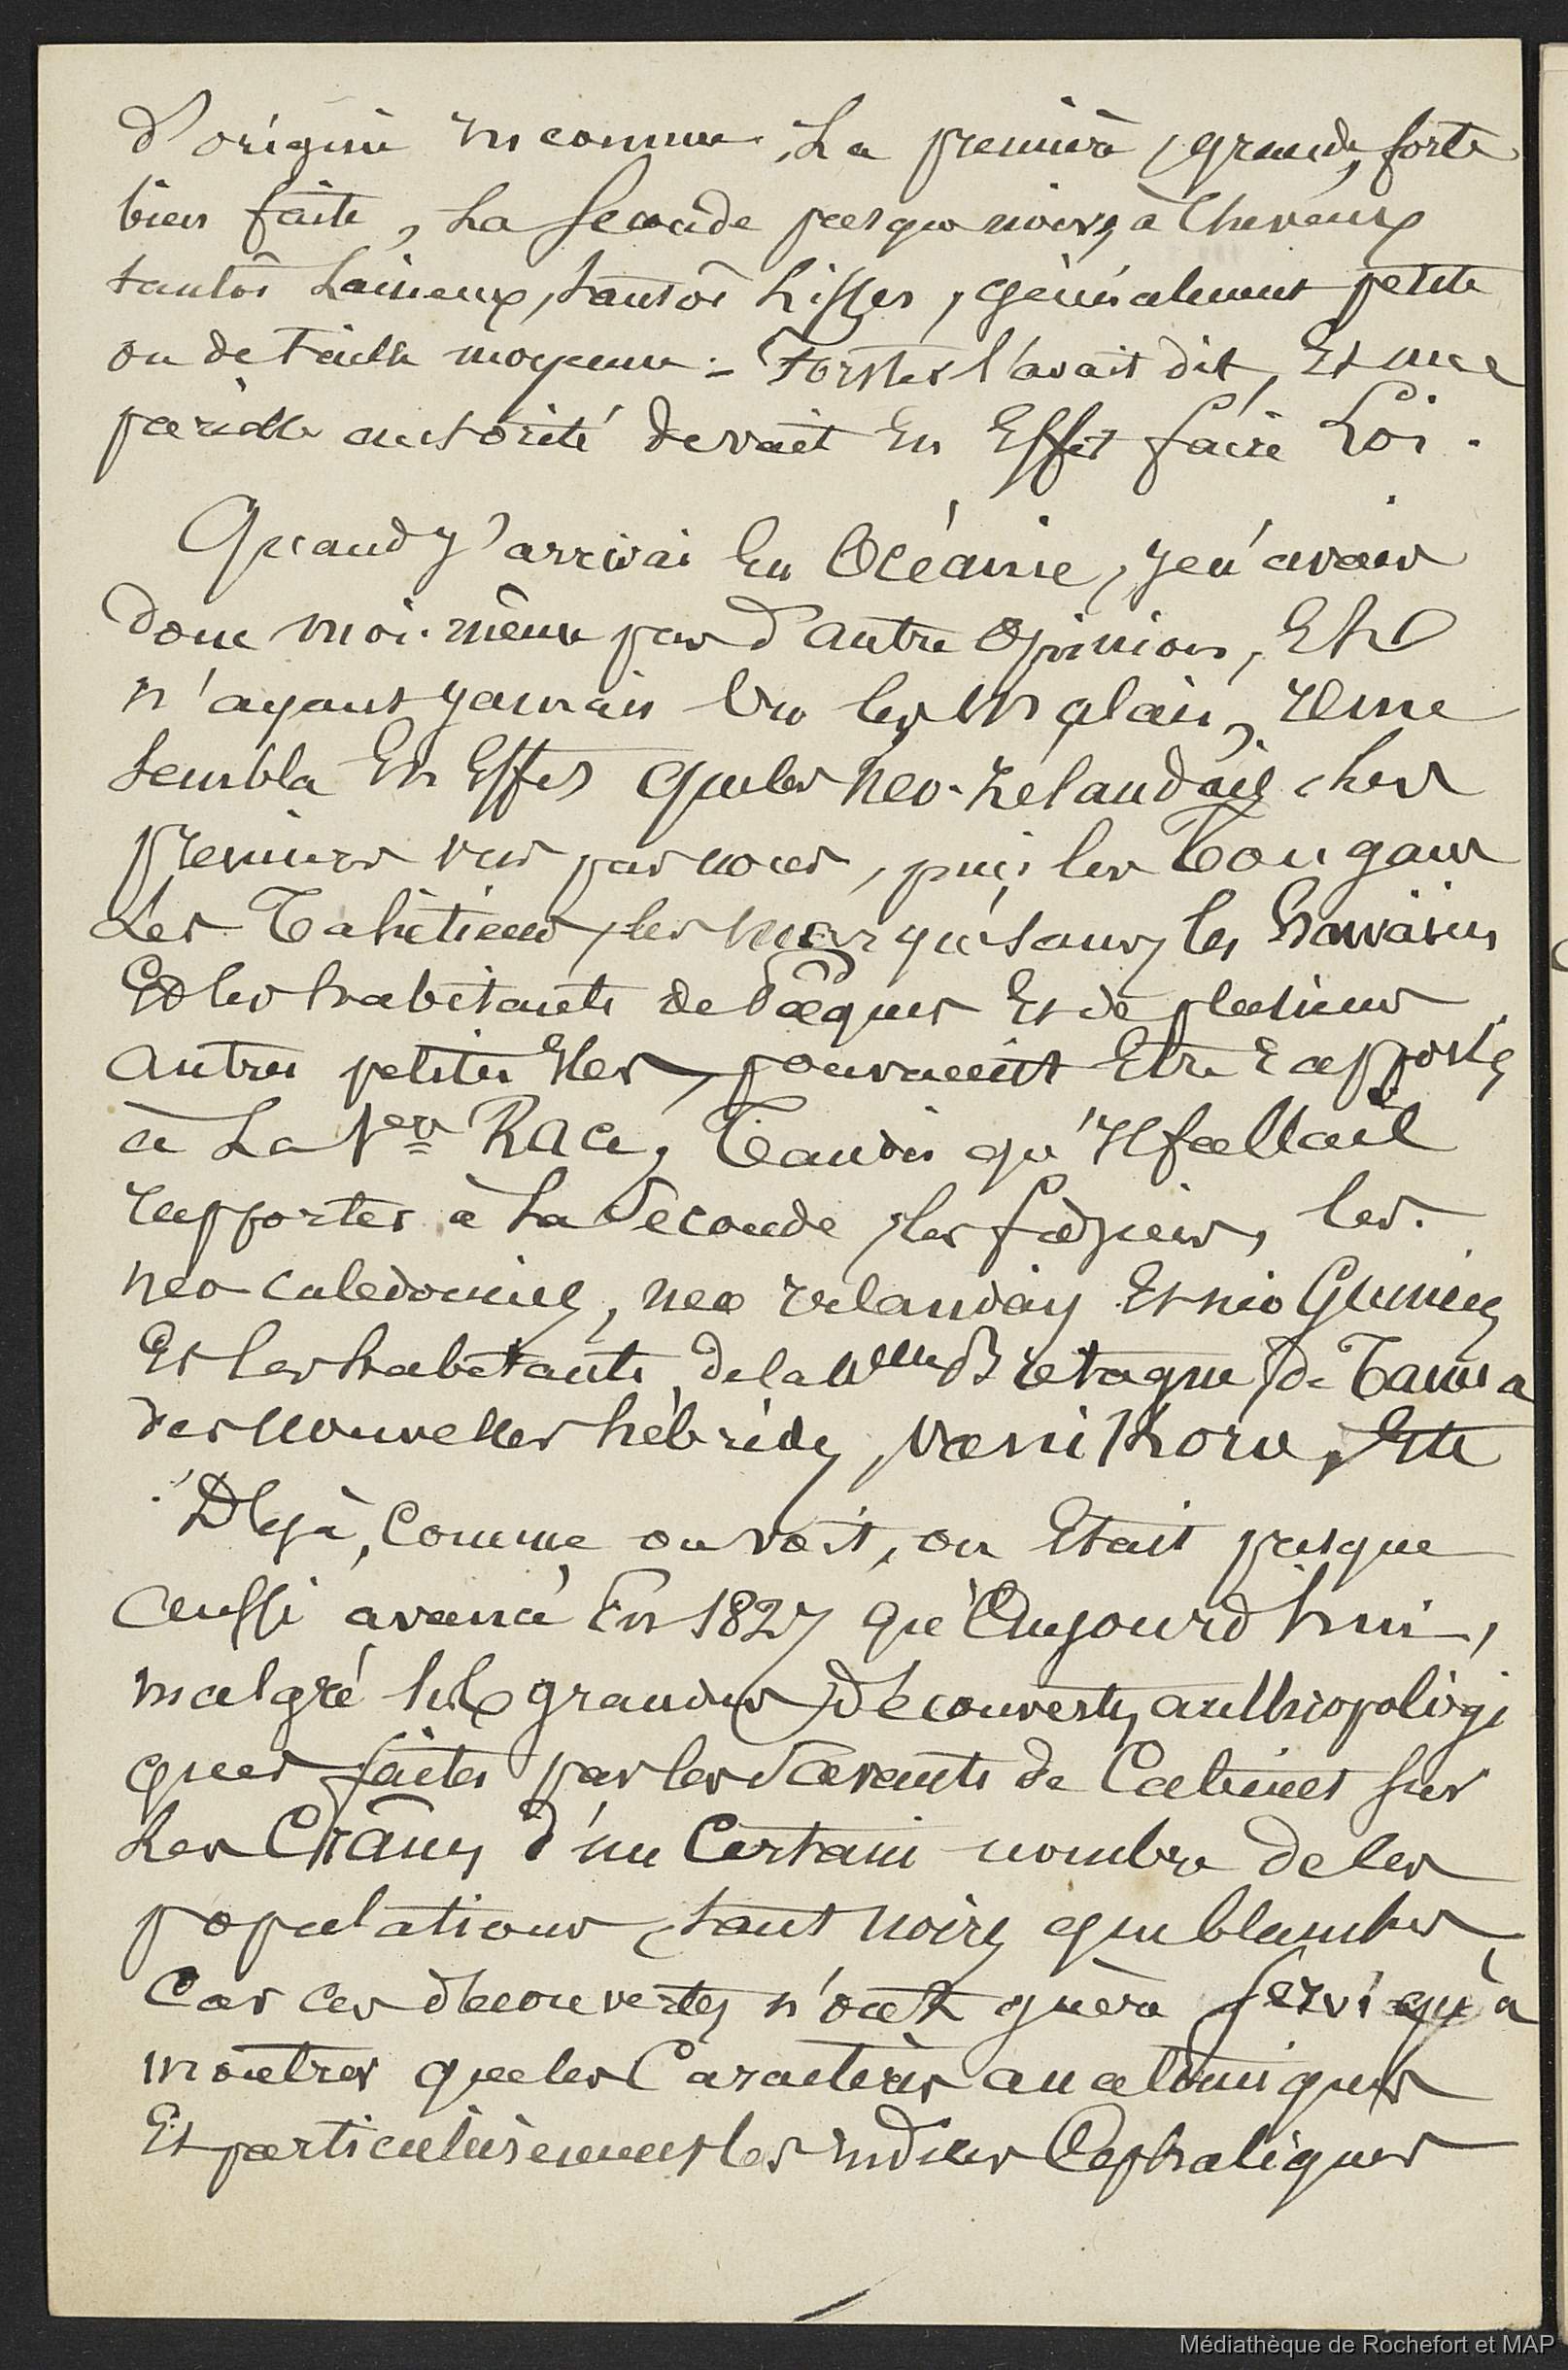 d'origine inconnue, La première, grande, forte
bien faite, La seconde presque noire, à Cheveux
tantôt Laineux, tantôt Lisses, généralement petite
ou de taille moyenne. - Forster l'avait dit, Et une
pareille autorité devait En Effet faire Loi.
Quand j'arrivai En Océanie, je n'avais
donc moi-même pas d'autre Opinion, Et
n'ayant jamais Vu les Malais, Il me
Sembla En Effet que les Néo-Zélandais
premiers vus par nous, puis les Tongans
Les Tahitiens, les Marquésans, les Hawaiiens
Et les habitants de Pâques Et de plusieurs
autres petites Iles, pouvaient Etre rapportés
à La 1ère Race, Tandis qu'Il fallait
rapporter à La Seconde, les fidjiens, les.
néo-calédoniens, néo zélandais Et néo Guinéens
Et les habitants de la Nlle Bretagne, de Tanna
des Nouvelles hébrides, Vanikoro, Etc
Déjà, Comme on voit, on Etait presque
aussi avancé En 1827 qu'Aujourd'hui,
malgré les grandes découvertes anthropologi
ques faites par les Savants de Cabinet sur
Les Crânes d'un Certain nombre de les
populations, tant noires que blanches
Car ces découvertes n'ont guère servi qu'à
montrer que les Caractères anatomiques
Et particulièrement les Indices Céphaliques
Médiathèque de Rochefort et MAP